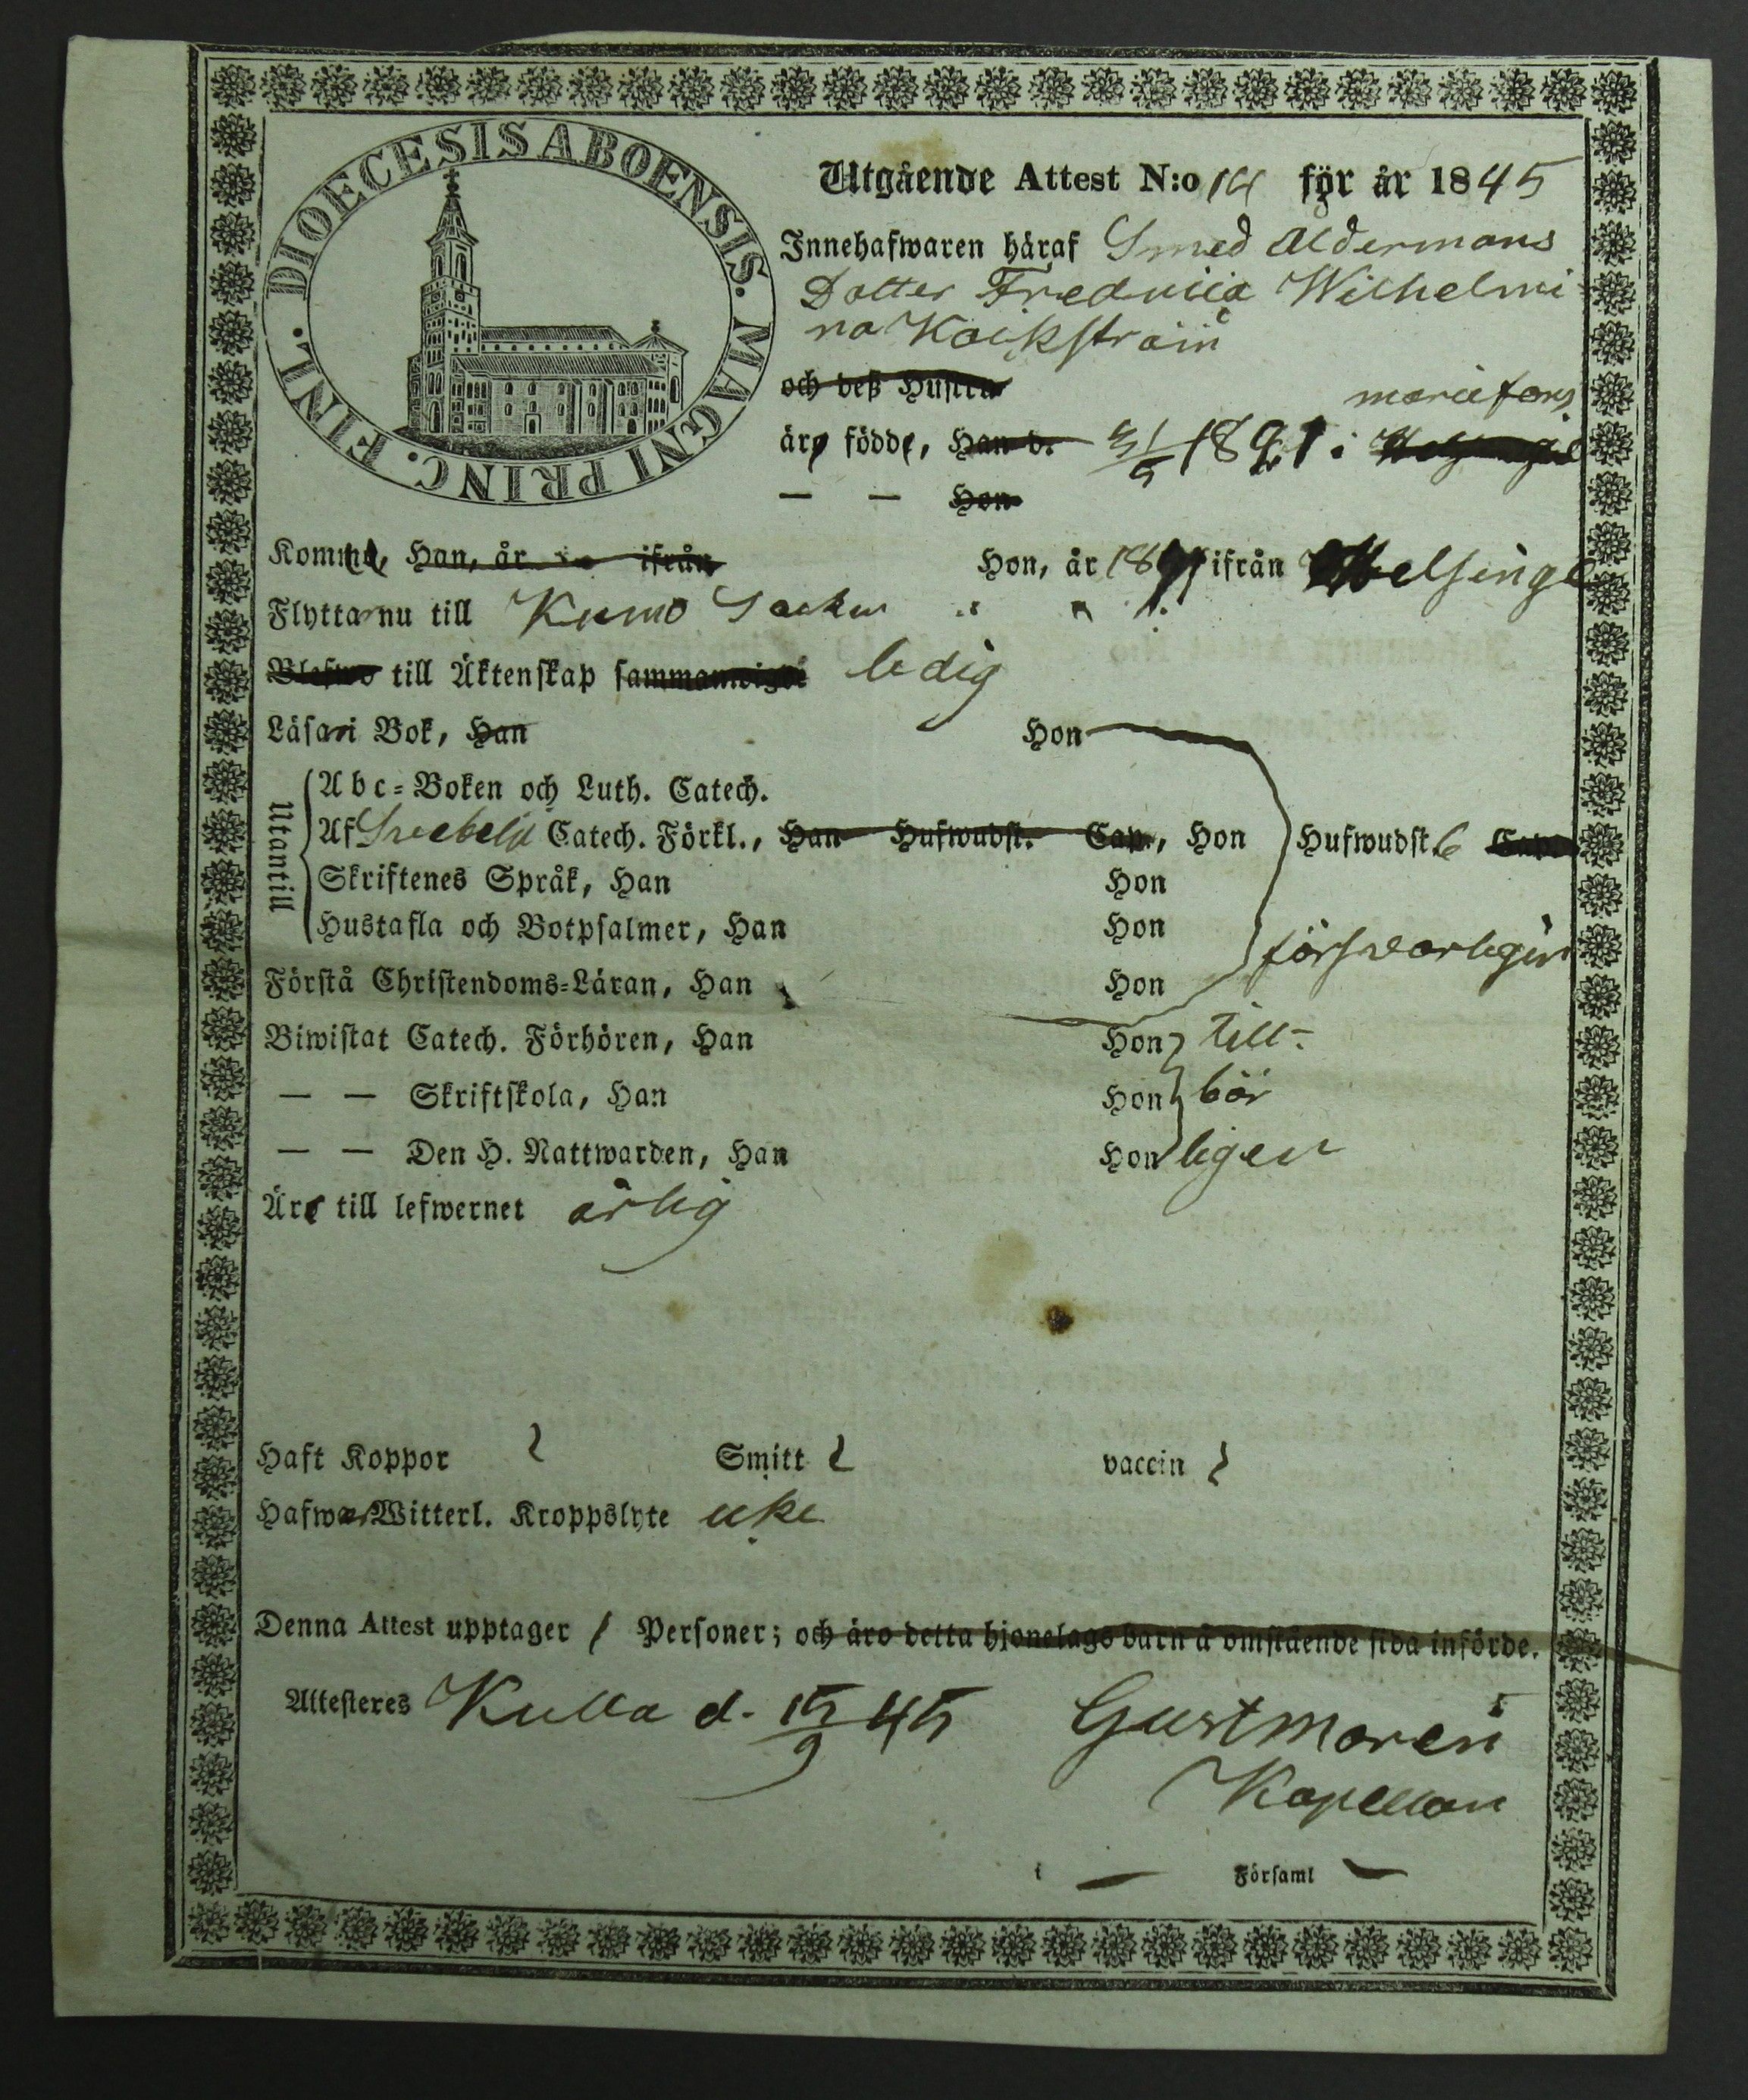 DIOECESIS ABOENSIS. MAGNI PRINC. FINL.
Utgående Attest N:o 14 för år 1845
Innehafwaren häraf Smed Åldermans
Dotter Fredrica Wilhelmi
na
och deß Hustru
mariefors
äro födde, Han d. 1821 i
— — Hon
Komne, Han, år ifrån Hon, år 18 ifrån Helsinge
Flytta nu till Kumo Socken
till Äktenskap ledig
Läsa i Bok, Han Hon
Utantill
Abc-Boken och Luth. Catech.
Af Svebelii Catech. Förkl., Han Hufwudst. Cap., Hon Hufwudst. 6 Cap.
Skriftenes Språk, Han Hon
Hustafla och Botpsalmer, Han Hon
försvarligen
Förstå Christendoms-Läran, Han Hon
Biwistat Catech. Förhören, Han Hon till-
— — Skriftskola, Han Hon bör
— — Den H. Nattwarden, Han Hon ligen
Äro till lefwernet ärlig
Haft Koppor Smitt vaccin
Hafwa Witterl. Kroppslyte icke
Denna Attest upptager 1 Personer; och äro detta hjonelags barn å omstående sida införde.
Attesteres Kulla d. 15/9 45 Gust Moren
Kapellan
i — Församl —